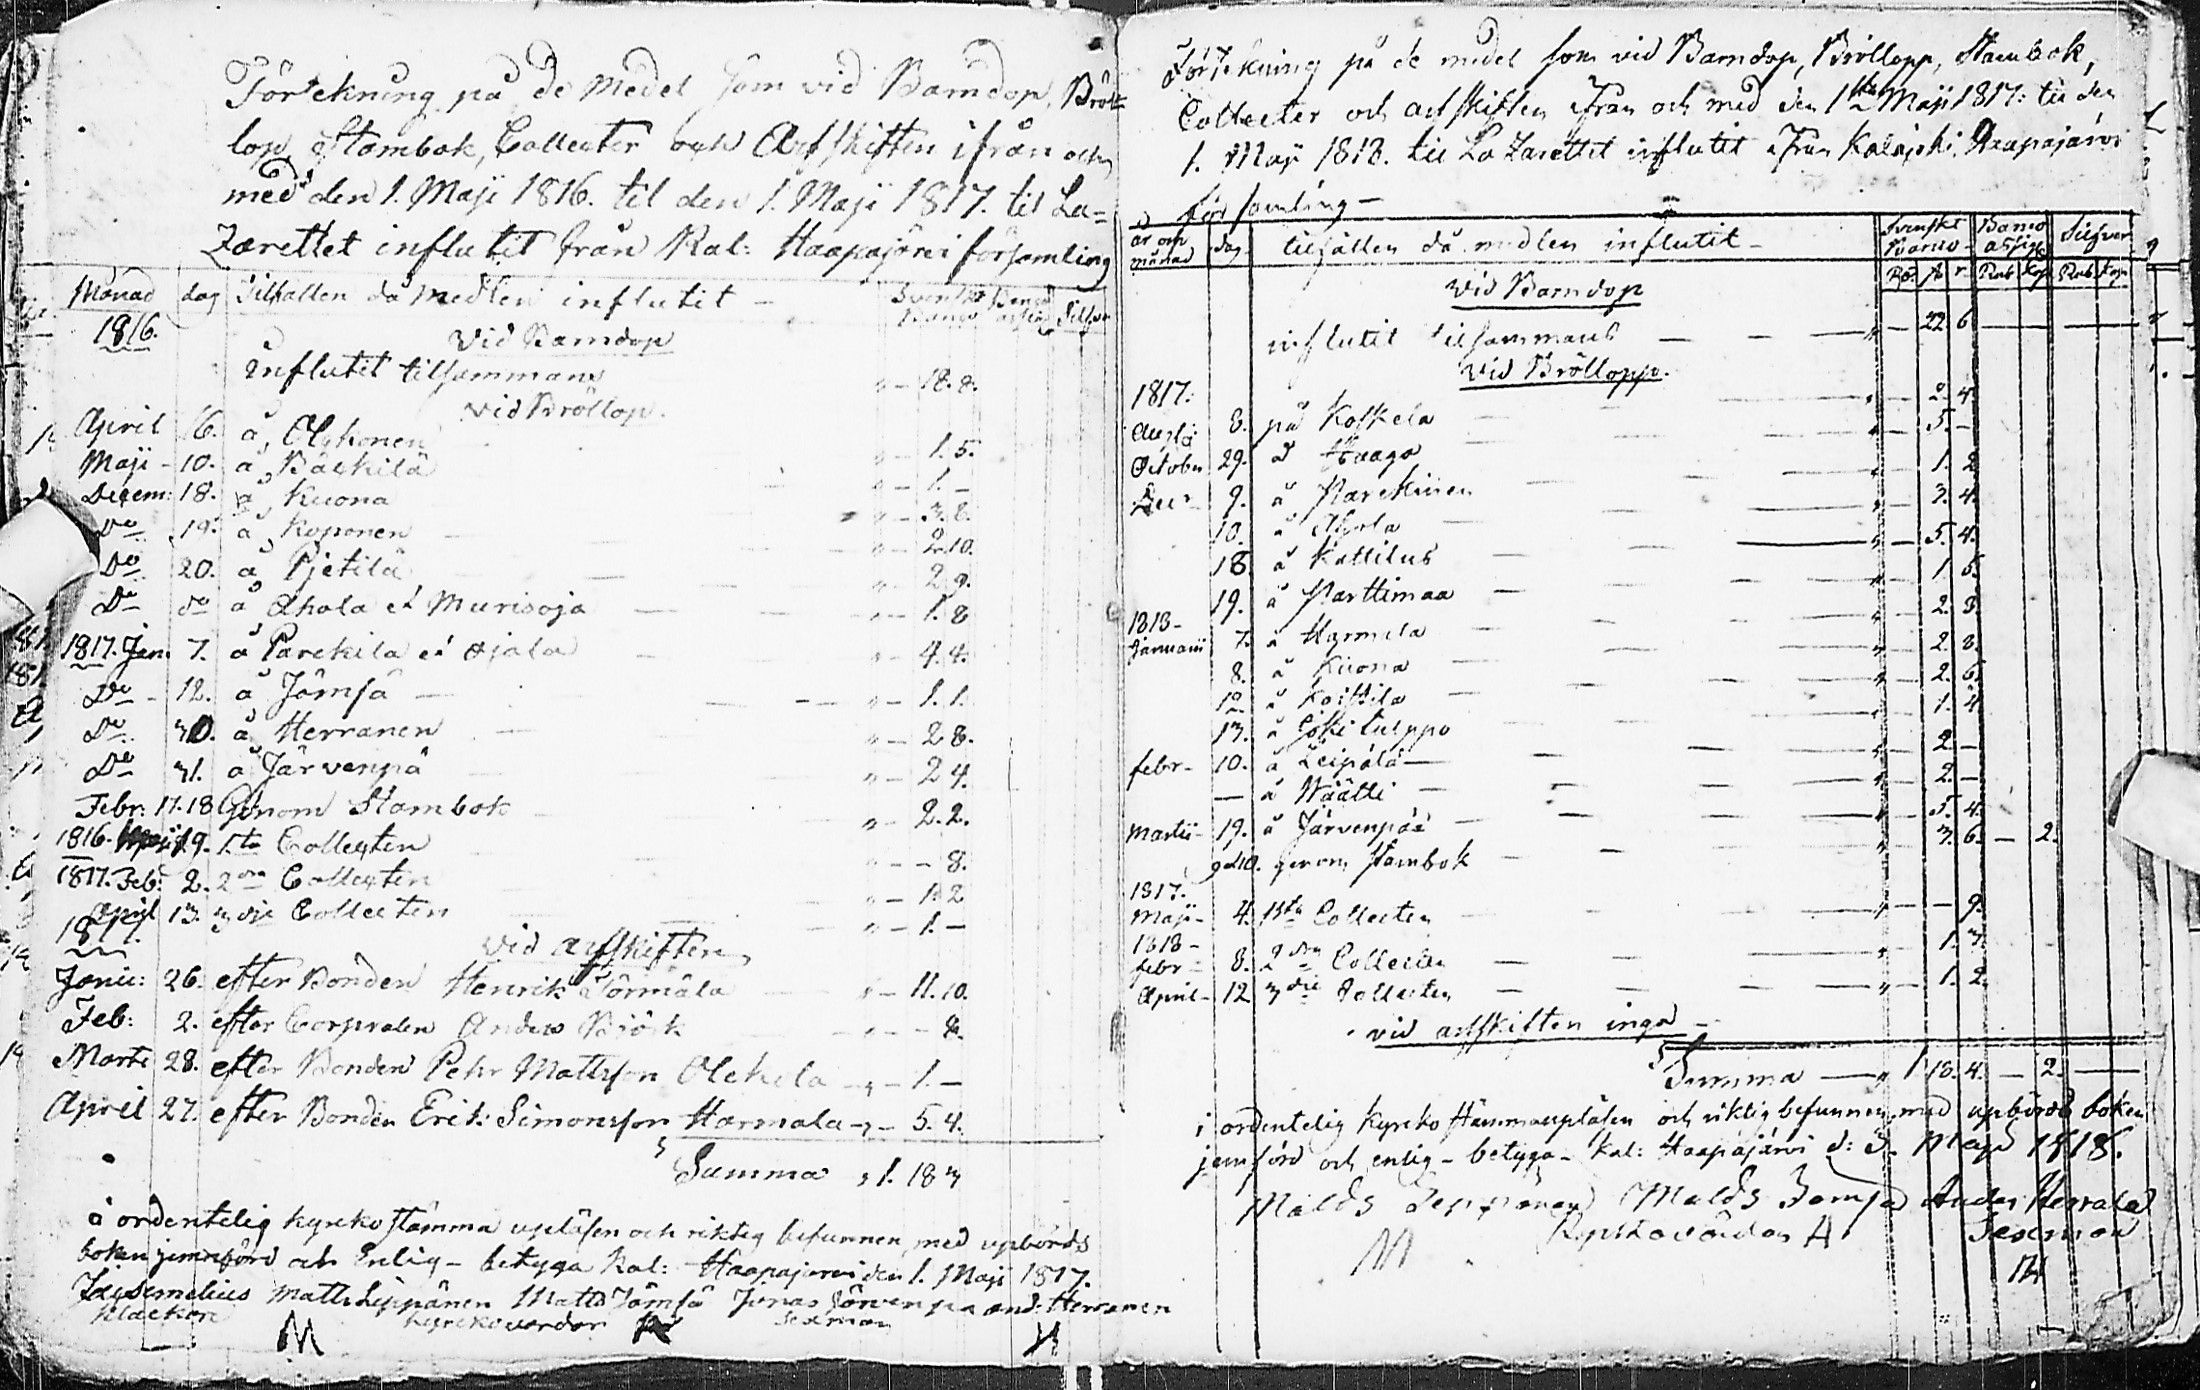 Förtekning på de Medel som vid Barndop, Bröl-
lop, Stambok, Collecter och Arfskiften ifrån och
med den 1. Maji 1816. til den 1. Maji 1817. til La=
zarettet influtit från Kal: Haapajärvi församling
Månad dag Tilfällen då Medlen influtit - Svenskt Banco Banco assign Silfver
1816. Vid Barndop
influtit tilsammans „ - 18. 8.
Vid Bröllop.
April 16. å Olykonen „ - 1. 5.
Maji - 10. å Bäckilä „ - 1. -
Decem: 18. å Kuona „ - 3. 8.
Do 19. å Koponen „ - 2. 10.
Do 20. å Pjetilä „ - 2. 9.
Do do å Ahola et Murisoja „ - 1. 8
1817. Jan: 7. å Parckila et Ojala „ - 4. 4.
Do - 12. å Jämsä „ - 1. 1.
Do 30. å Herranen „ - 2 8.
Do 31. å Järvenpä „ - 2 4.
Febr: 17. 18 Genom Stambok „ - 2. 2.
1816. 19. 1.ta Collecten „ - - 8.
1817. Feb: 2. 2dra Collecten „ - 1. 2
April 13. 3dje Collecten „ - 1. -
1817. Vid Arfskiften
Janu: 26. efter Bonden Henrik Törmälä „ - 11. 10.
Feb: 2. efter Corpralen Anders Björk „ - - 8.
Marti 28. efter Bonden Pehr Mattsson Olckela „ - 1. -
April 27. efter Bonden Erik: Simonsson Harmala „ - 5. 4.
Summa „ 1. 18 3
å ordentelig kyrko stämma upläsen och riktig befunnen, med upbörds
boken jemnförd och Enlig - betyga Kal: Haapajervi den 1. Maji 1817.
Matts Leppänen Matts Jämsä Jonas Järvenpa And: Herranen
klackare kyrkovärdar Sexman
M
Förtekning på de medel som vid Barndop, Bröllopp, Stambok,
Collecter och arfskiften ifrån och med den 1sta Maji 1817: til den
1. Maji 1818. til Lazarettet influtit ifrån Kalajoki, Haapajärvi
församling -
år och månad dag tilfällen då medlen influtit - Svenskt Banco - Banco assign Silfver
Rd. sk r. Rub Kop Rub Kop
Vid Barndop
influtit tilsammans „ - 22 6
Vid Bröllopp.
1817: „ - 2. 4.
Augsti 8. på Koskela „ - 5. -
Octobr 29. å Haago „ - 1. 2
Decr 9. å Parckinen „ - 3. 4.
10. å Ahola „ - 5. 4.
18. å Kattilus „ - 1. 5.
19. å Parttimaa „ - 2. 8.
1818 -
Januarii 7. å Harmala „ - 2. 8.
8. å Kuona „ - 2. 6.
12. å Koiskila „ - 1. 4
13. å Joki tulppo „ - 2. -
febr - 10. å Leipälä „ - 2. -
- å Wäätti „ - 5. 4.
Martii - 19. å Järvenpää „ - 3. 6. - 2.
9 et 10. genom Stambok
1817.
Maji - 4. 1sta Collecten „ - - 9.
1818 -
febr - 8. 2dra Collecten „ - 1. 3.
April - 12 3die Collecten „ - 1. 2.
vid arfskiften inga -
Summa „ 1 18. 4. - 2. -
i ordentelig kyrko stämma upläsen och riktig befunnen, med upbörds boken
jemförd och enlig - betyga - Kal: Haapajärvi d: 3. Maji 1818.
Matts Leppänen Matts Jämsä Anders Herrala
Kyrkovärdar A Sexman
M